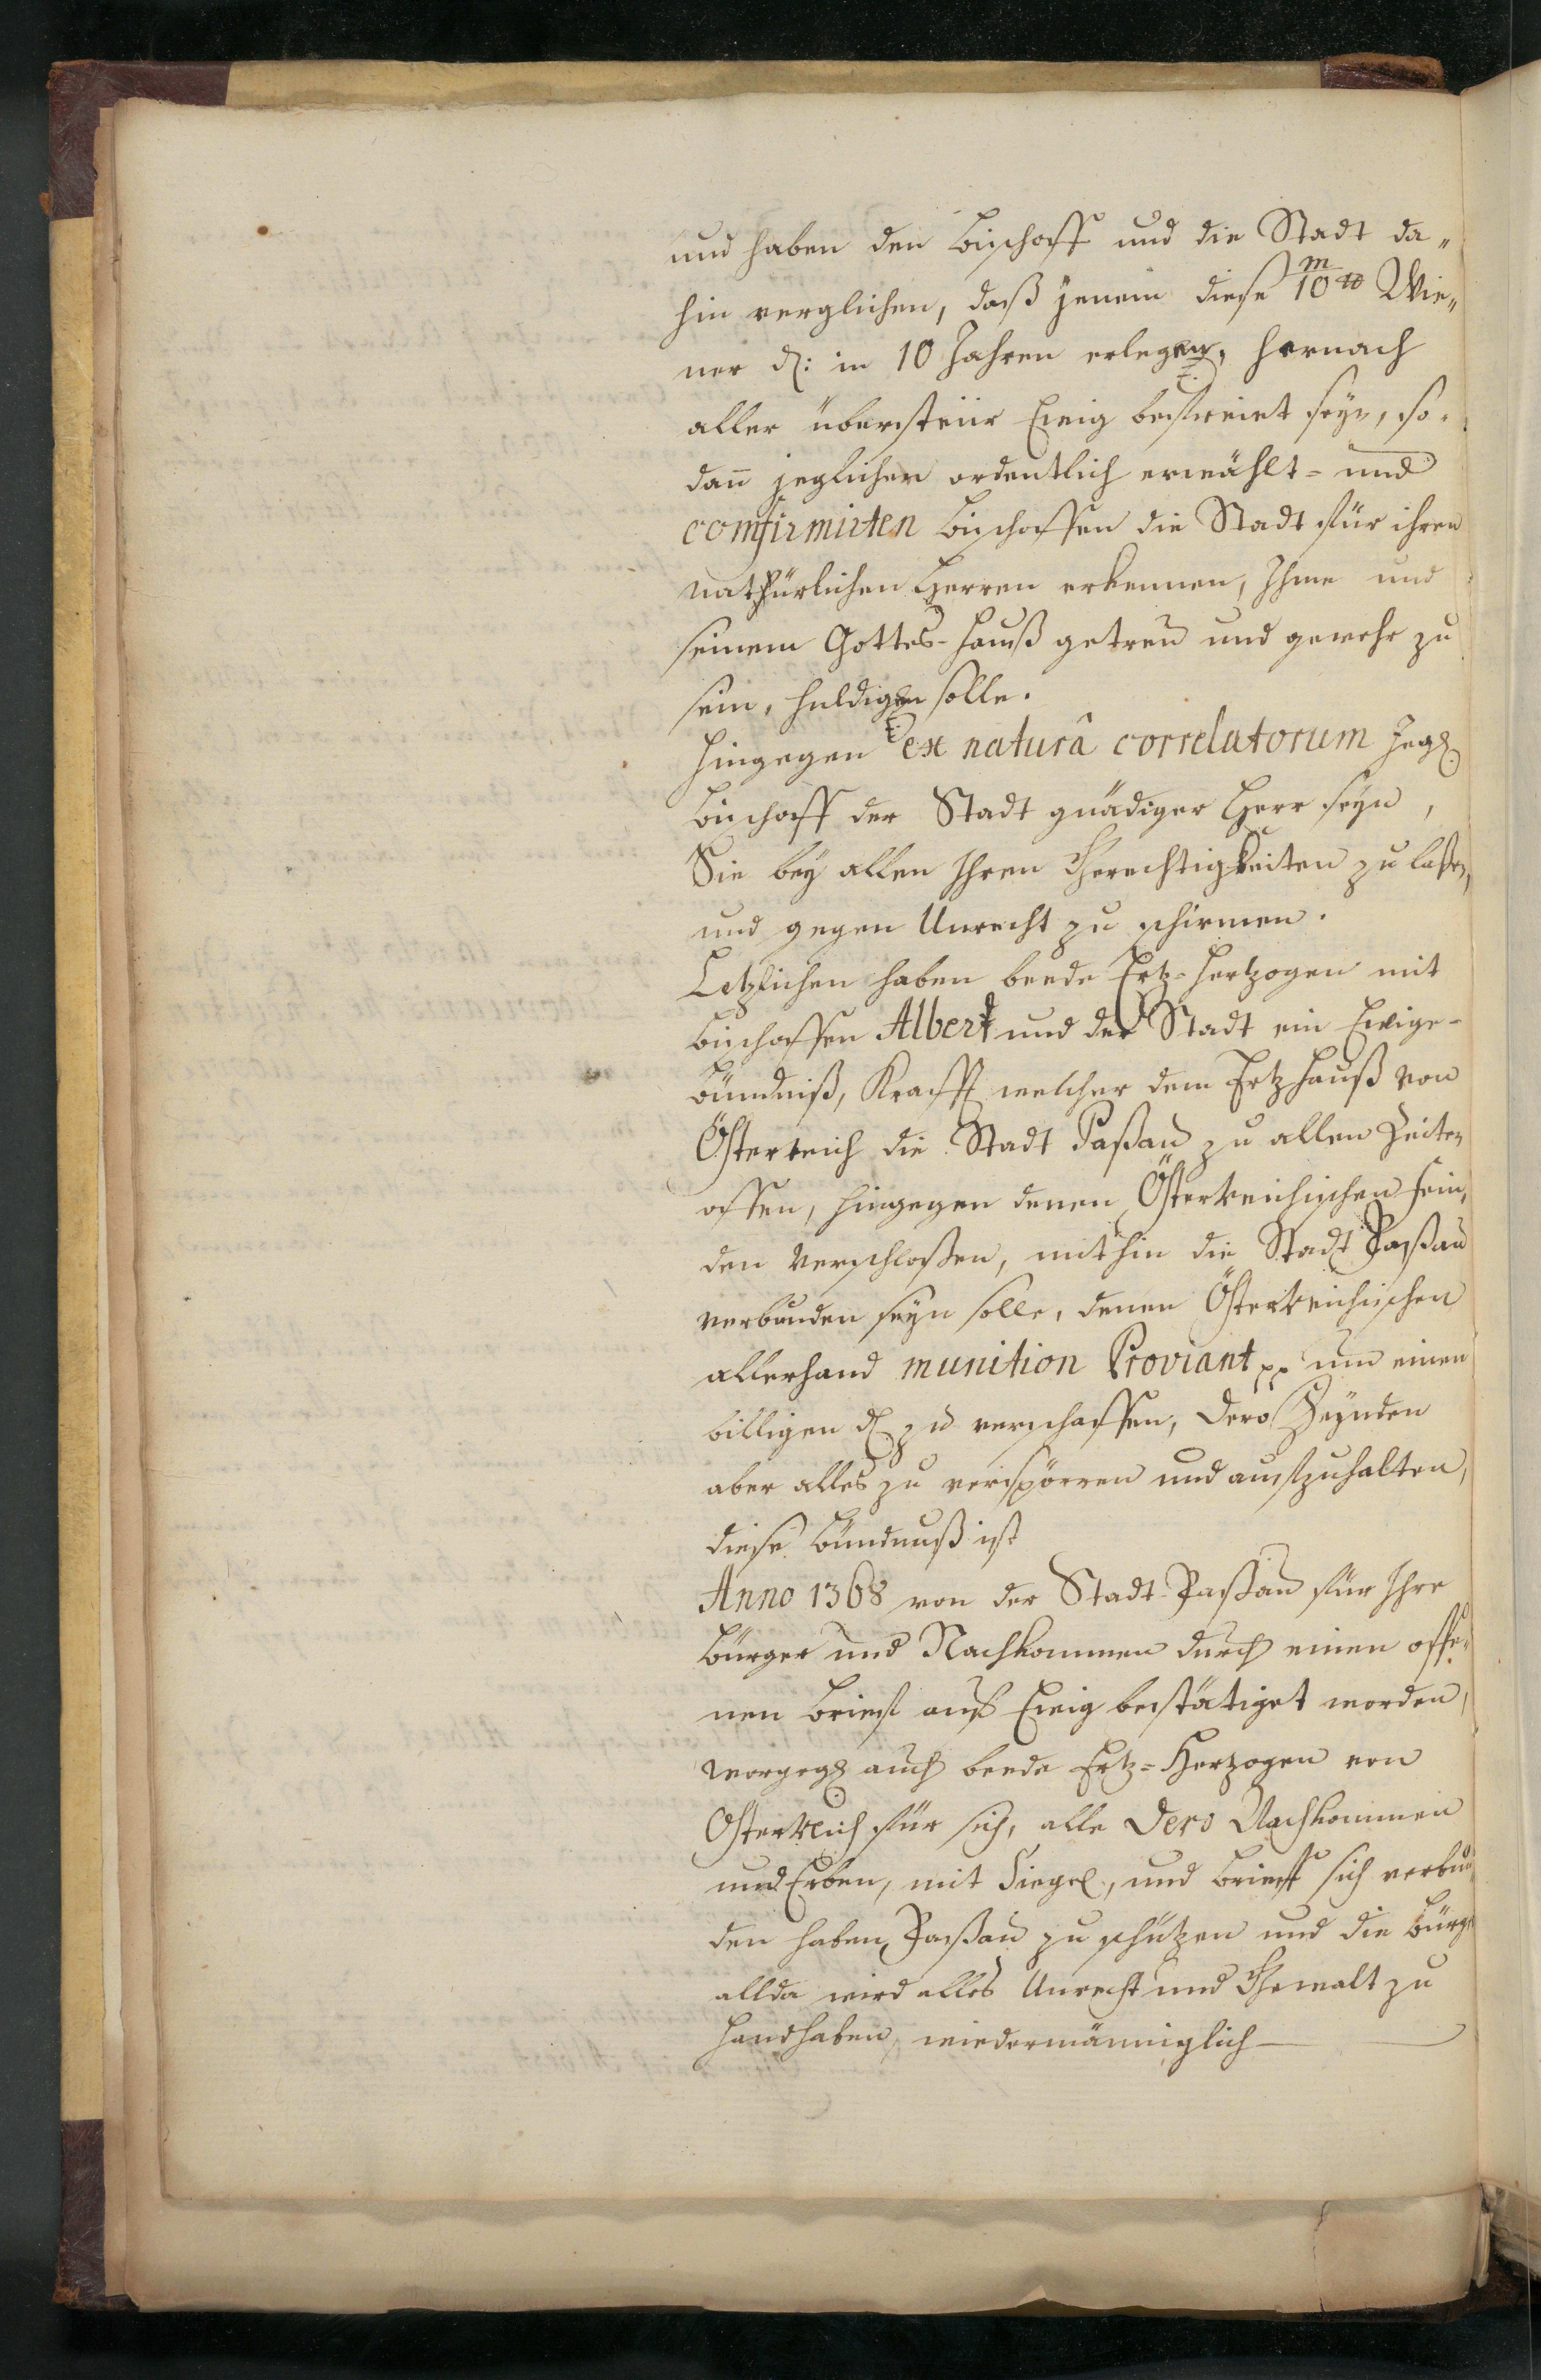 und haben den Bischoff und die Stadt da„
hin verglichen, daß jenem diese 10 m ℔ Wie„
ner ₰: in 10 Jahren erlegen, hernach
aller übersteür Ewig befreiet seyn, so„
dan̄ jeglicher ordentlich erwählt= und
comfirmirten Bischoffen die Stadt für ihren
nathürlichen Herren erkennen, Ihme und
seinem Gottes-Hauß getreu und gewehr zu
sein, huldigen solle.
Hingegen ex naturâ correlatorum Jeg
Bischoff der Stadt gnädiger Herr seyn,
Sie bey allen Ihren Gerechtigkeiten zu laßen,
und gegen Unrecht zu schirmen.
Letzlichen haben beede Ertz=Hertzogen mit
Bischoffen Albert und der Stadt ein Ewige-
Bündniß, Krafft welcher dem Ertzhauß von
Österreich die Stadt Paßau zu allen Zeiten
offen, hingegen denen Österreichischen Fein„
den verschloßen, mithin die Stadt Paßau
verbunden seyn solle, denen Österreichischen
allerhand munition Proviant pp um einen
billigen ₰ zu verschaffen, Dero Feynden
aber alles zu verspörren und aufzuhalten,
diese Bündnuß ist
Anno 1368 von der Stadt-Paßau für Ihre
Bürger und Nachkommen durch einen offe„
nen Brief auf Ewig bestätiget worden,
worgeg auch beede Ertz=Herzogen von
Österreich für sich, alle Dero Nachkommen
und Erben, mit Siegel, und Brieff sich verbun
den haben, Paßau zu schützen und die Bürger
allda wird alles Unrecht und Gewalt zu
handhaben, wiedermänniglich